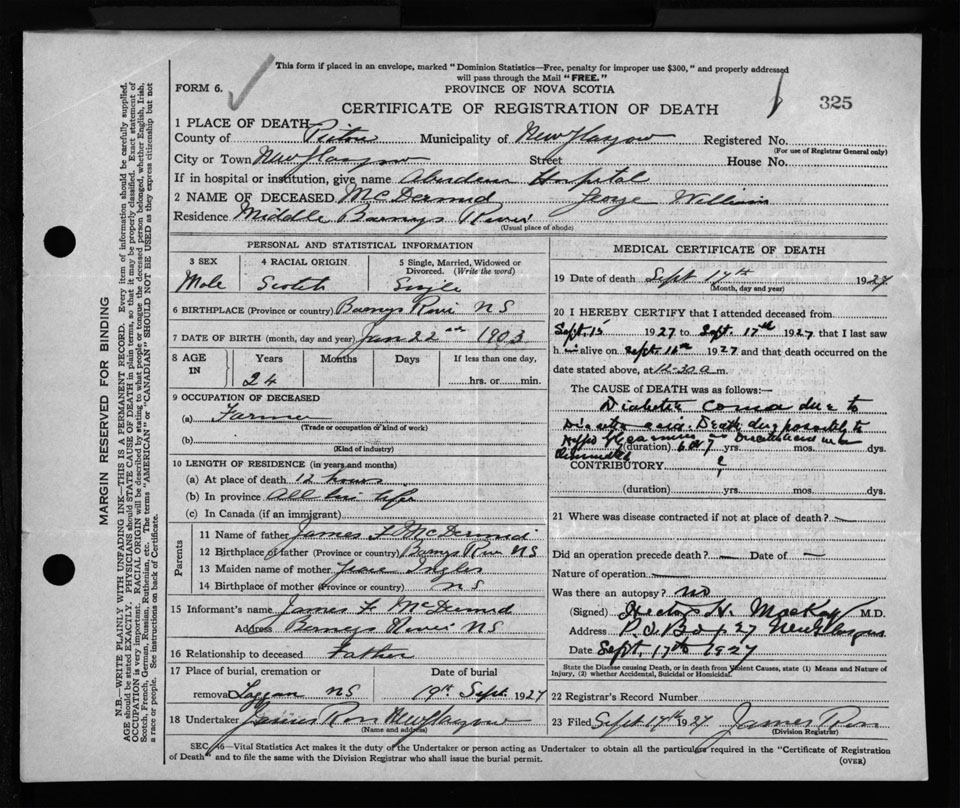 This form if placed in an envelope, marked "Dominion Statistics—Free, penalty for improper use $300," and properly addressed
will pass through the Mail "FREE."
FORM 6.
PROVINCE OF NOVA SCOTIA
CERTIFICATE OF REGISTRATION OF DEATH
325
1 PLACE OF DEATH
County of Pictou Municipality of New Glasgow Registered No.
(For use of Registrar General only)
City or Town New Glasgow Street House No.
If in hospital or institution, give name Aberdeen Hospital
2 NAME OF DECEASED McDermid George William
Residence Middle Barnys River
(Usual place of abode)
MARGIN RESERVED FOR BINDING
N.B.—WRITE PLAINLY WITH UNFADING INK—THIS IS A PERMANENT RECORD. Every item of information should be carefully supplied.
AGE should be stated EXACTLY. PHYSICIANS should STATE CAUSE OF DEATH in plain terms, so that it may be properly classified. Exact statement of
OCCUPATION is very important. RACIAL ORIGIN will be described by stating to what people or tongue the deceased person belonged, whether English, Irish,
Scotch, French, German, Russian, Ruthenian, etc. The terms "AMERICAN" or "CANADIAN" SHOULD NOT BE USED as they express citizenship but not
a race or people. See instructions on back of Certificate.
PERSONAL AND STATISTICAL INFORMATION
3 SEX 4 RACIAL ORIGIN 5 Single, Married, Widowed or
Divorced. (Write the word)
Male Scotch Single
6 BIRTHPLACE (Province or country) Barnys River NS
7 DATE OF BIRTH (month, day and year) Jan 22nd 1903
8 AGE IN Years Months Days If less than one day,
24 hrs. or min.
9 OCCUPATION OF DECEASED
(a) Farmer
(Trade or occupation or kind of work)
(b)
(Kind of industry)
10 LENGTH OF RESIDENCE (in years and months)
(a) At place of death 12 hours
(b) In province All his life
(c) In Canada (if an immigrant)
Parents
11 Name of father James F McDermid
12 Birthplace of father (Province or country) Barnys River NS
13 Maiden name of mother
14 Birthplace of mother (Province or country) NS
15 Informant's name James F McDermid
Address Barnys River NS
16 Relationship to deceased Father
17 Place of burial, cremation or Date of burial
removal Laggan NS 19th Sept. 1927
18 Undertaker James Ross New Glasgow
(Name and address)
MEDICAL CERTIFICATE OF DEATH
19 Date of death Sept 17th 1927
(Month, day and year)
20 I HEREBY CERTIFY that I attended deceased from
Sept. 15 1927 to Sept. 17th 1927 that I last saw
h im alive on Sept. 16th 1927 and that death occurred on
date stated above, at 12-30 a m.
The CAUSE of DEATH was as follows:—
Diabetic Coma due to
Death due possibly to
(duration) yrs. mos. dys.
CONTRIBUTORY ?
(duration) yrs. mos. dys.
21 Where was disease contracted if not at place of death? —
Did an operation precede death? — Date of —
Nature of operation —
Was there an autopsy? no
(Signed) Hector H. MacKay M.D.
Address P.O. Box 27 New Glasgow
Date Sept. 17th 1927
State the Disease causing Death, or in death from Violent Causes, state (1) Means and Nature of
Injury, (2) whether Accidental, Suicidal or Homicidal.
22 Registrar's Record Number
23 Filed Sept 17th 1927 James Ross
(Division Registrar)
SEC. 46—Vital Statistics Act makes it the duty of the Undertaker or person acting as Undertaker to obtain all the particulars required in the "Certificate of Registration
of Death" and to file the same with the Division Registrar who shall issue the burial permit.
(OVER)